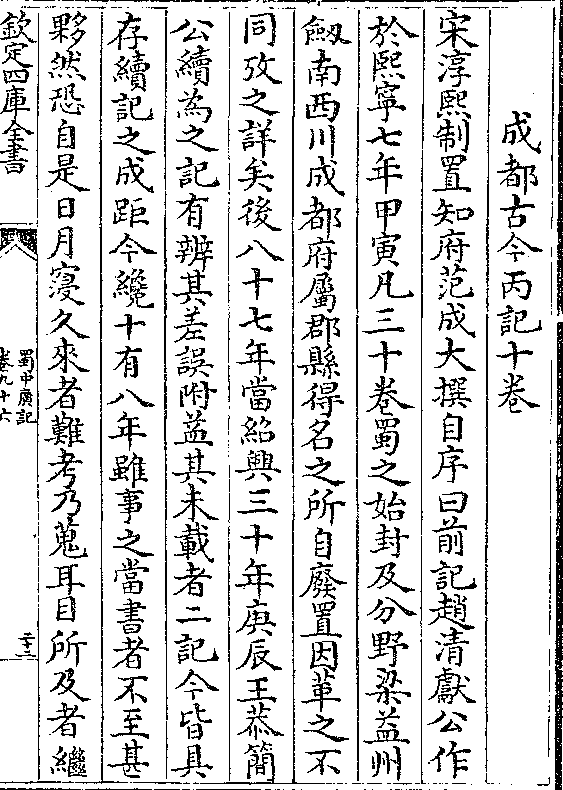 成都古今丙記十卷
宋淳熙制置知府范成大撰自序曰前記趙清獻公作
於熙寧七年甲寅凡三十卷蜀之始封及分野梁益州
劔南西川成都府屬郡縣得名之所自廢置因革之不
同攷之詳矣後八十七年當紹興三十年庚辰王恭簡
公續為之記有辨其差誤附益其未載者二記今皆具
存續記之成距今纔十有八年雖事之當書者不至甚
夥然恐自是日月寖久來者難考乃蒐耳目所及者繼
欽定四庫全書
蜀中廣記
卷九十六
二十二